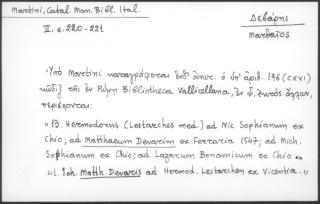 Martini, Catal. Man. Bibl. Ital.
II, σ. 220-221
Δεβάρης
Ματθαῖος
Ὑπὸ Martini καταγράφεται ὁ ὑπ' ἀριθ. 196 (CXVI)
κῶδιξ τῆς ἐν Ρώμῃ Bibliotheca Vallicellana, ἐν ᾧ, ἐκτὸς ἄλλων,
περιέχονται:
"13. Hermodorus (Lestarches med.) ad Nic Sophianum ex
Chio; ad Matthaeum Devareim ex Ferraria 1547; ad Mich.
Sophianum ex Chio; ad Lazarum Bonamicum ex Chio
41. Joh. Matth. Devaris ad Hermod. Lestarchen ex Vicentia."